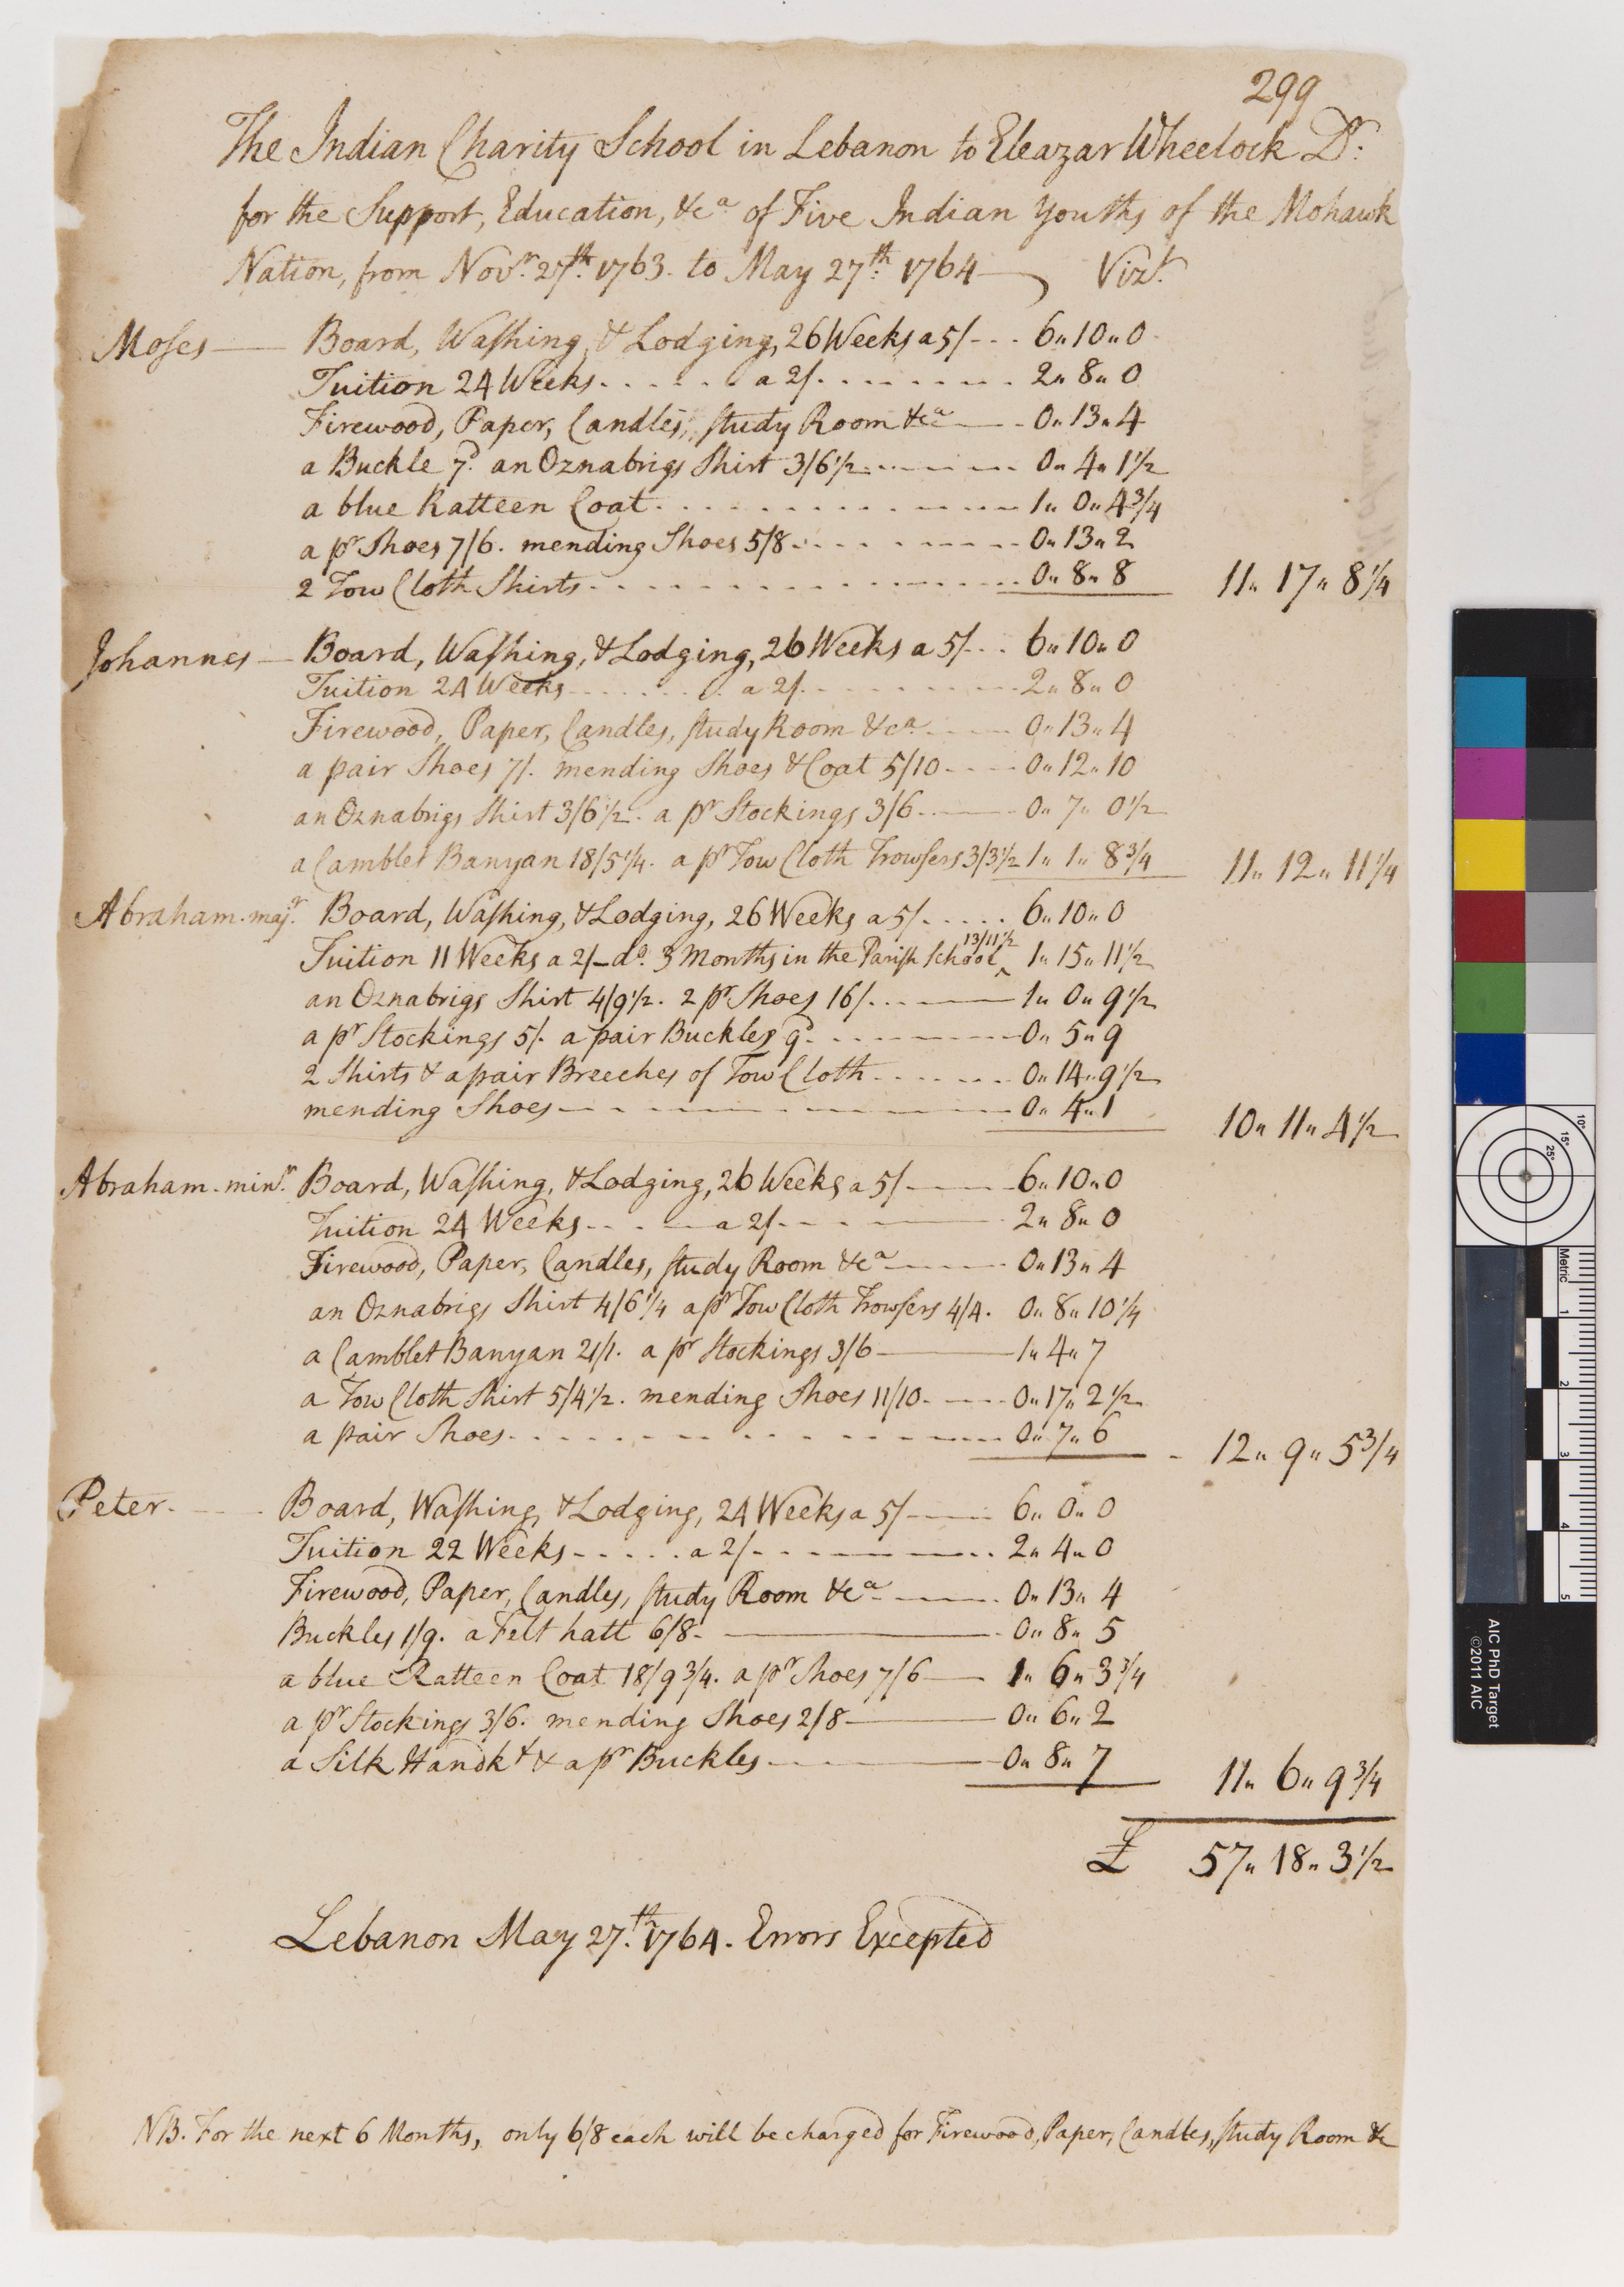 299
The Indian Charity School in Lebanon to Eleazar Wheelock Dr.
for the Support, Education, &ca of Five Indian Youths of the Mohawk
Nation, from Novr. 27th. 1763. to May 27th. 1764 — Vizt.
Moses — Board, Washing, & Lodging, 26 Weeks a 5/ - - - 6„10„0
Tuition 24 Weeks - - - - a 2/. - - - - 2„8„0
Firewood, Paper, Candles, study Room &ca — 0„13„4
a Buckle 7d. an Oznabrigs Shirt 3/6½ - - - 0„4„1½
a blue Ratteen Coat - - - - 1„0„4¾
a pr Shoes 7/6. mending Shoes 5/8 - - - - 0„13„2
2 Tow Cloth Shirts - - - - 0„8„8 11„17„8¼
Johannes — Board, Washing, & Lodging, 26 Weeks a 5/ - - - 6„10„0
Tuition 24 Weeks - - - - a 2/. - - - - 2„8„0
Firewood, Paper, Candles, study Room &ca — 0„13„4
a pair Shoes 7/. mending Shoes & Coat 5/10 - - - 0„12„10
an Oznabrigs Shirt 3/6½. a pr Stockings 3/6 — 0„7„0½
a Camblet Banyan 18/5¼. a pr Tow Cloth Trowsers 3/3½ 1„1„8¾ 11„12„11¼
Abraham. majr. Board, Washing, & Lodging, 26 Weeks a 5/ - - - 6„10„0
Tuition 11 Weeks a 2/ – do. 3 Months in the Parish School ^ 13/11½ 1„15„11½
an Oznabrigs Shirt 4/9½. 2 pr Shoes 16/. — 1„0„9½
a pr Stockings 5/. a pair Buckles 9d. - - - 0„5„9
2 Shirts & a pair Breeches of Tow Cloth - - - - 0„14„9½
mending Shoes - - - - 0„4„1 10„11„4½
Abraham. minr. Board, Washing, & Lodging, 26 Weeks a 5/ — 6„10„0
Tuition 24 Weeks - - - a 2/ - - - 2„8„0
Firewood, Paper, Candles, study Room &ca — 0„13„4
an Oznabrigs Shirt 4/6¼ a pr Tow Cloth Trowsers 4/4. 0„8„10¼
a Camblet Banyan 21/1. a pr Stockings 3/6 — 1„4„7
a Tow Cloth Shirt 5/4½. mending Shoes 11/10. - - - 0„17„2½
a pair Shoes - - - - 0„7„6 - 12„9„5¾
Peter. — Board, Washing, & Lodging, 24 Weeks a 5/ — 6„0„0
Tuition 22 Weeks - - - - a 2/ - - - - 2„4„0
Firewood, Paper, Candles, study Room &ca — 0„13„4
Buckles 1/9. a Felt hatt 6/8 - — 0„8„5
a blue Ratteen Coat 18/9¾. a pr Shoes 7/6 — 1„6„3¾
a pr Stockings 3/6. mending Shoes 2/8 — 0„6„2
a Silk Handkt & a pr Buckles — 0„8„7 11„6„9¾
£ 57„18„3½
Lebanon May 27th. 1764. Errors Excepted
NB. For the next 6 Months, only 6/8 each will be charged for Firewood, Paper, Candles, study Room &c
10°
15°
25°
Metric
1
2
3
4
5
AIC PhD Target
©2011 AIC